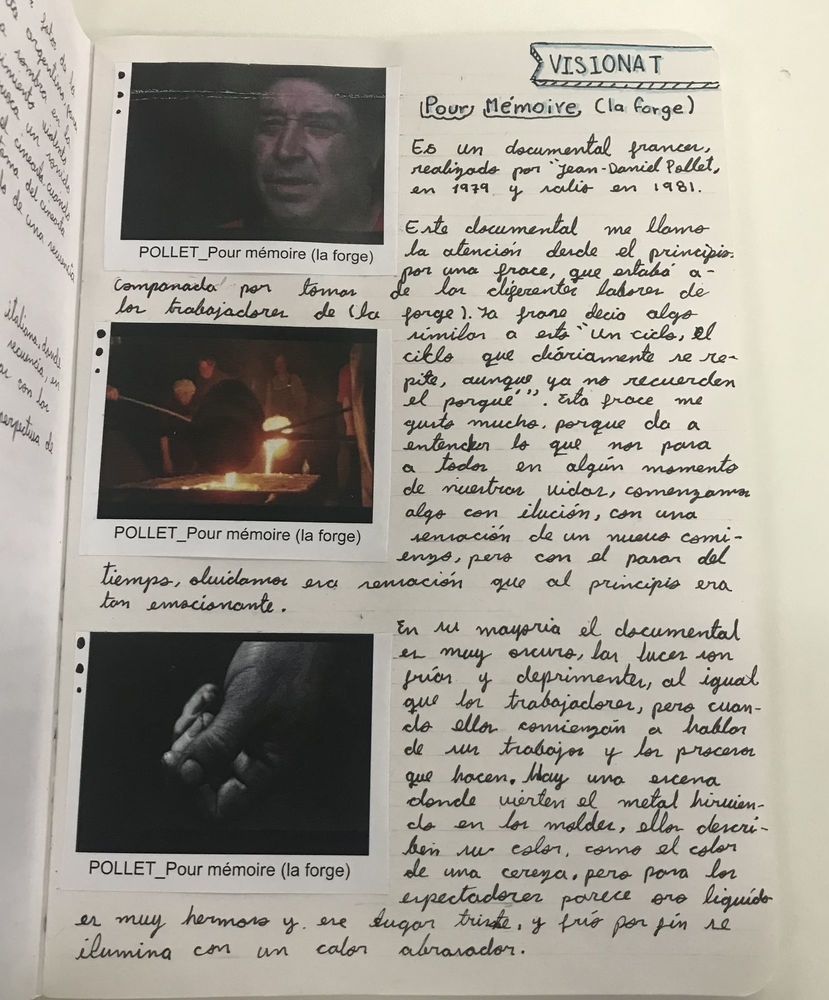 VISIONAT
Pour Mémoire (la forge)
Es un documental frances,
realizado por "Jean-Daniel Pollet,
en 1979 y salio en 1981.
POLLET_Pour mémoire (la forge)
Este documental me llamo
la atención desde el principio.
por una frace, que estaba a-
companada por tomas de las diferentes labores de
los trabajadores de (la forge). La frase decia algo
similar a esto "Un ciclo, el
ciclo que diariamente se re-
pite, aunque ya no recuerden
el porqué". Esta frace me
gusto mucho, porque da a
entender lo que nos pasa
a todos en algún momento
de nuestras vidas, comenzamos
algo con ilución, con una
sensación de un nuevo comi-
enzo, pero con el pasar del
tiempo, olvidamos esa sensación que al principio era
tan emocionante.
POLLET_Pour mémoire (la forge)
En su mayoria el documental
es muy oscuro, las luces son
frías y deprimentes, al igual
que los trabajadores, pero cuan-
do ellos comienzan a hablar
de sus trabajos y los procesos
que hacen. Hay una escena
donde vierten el metal hirvien-
do en los moldes, ellos descri-
ben su color, como el color
de una cereza, pero para los
espectadores parece oro liquido
es muy hermoso y ese lugar triste, y frío por fin se
ilumina con un calor abrasador.
POLLET_Pour mémoire (la forge)